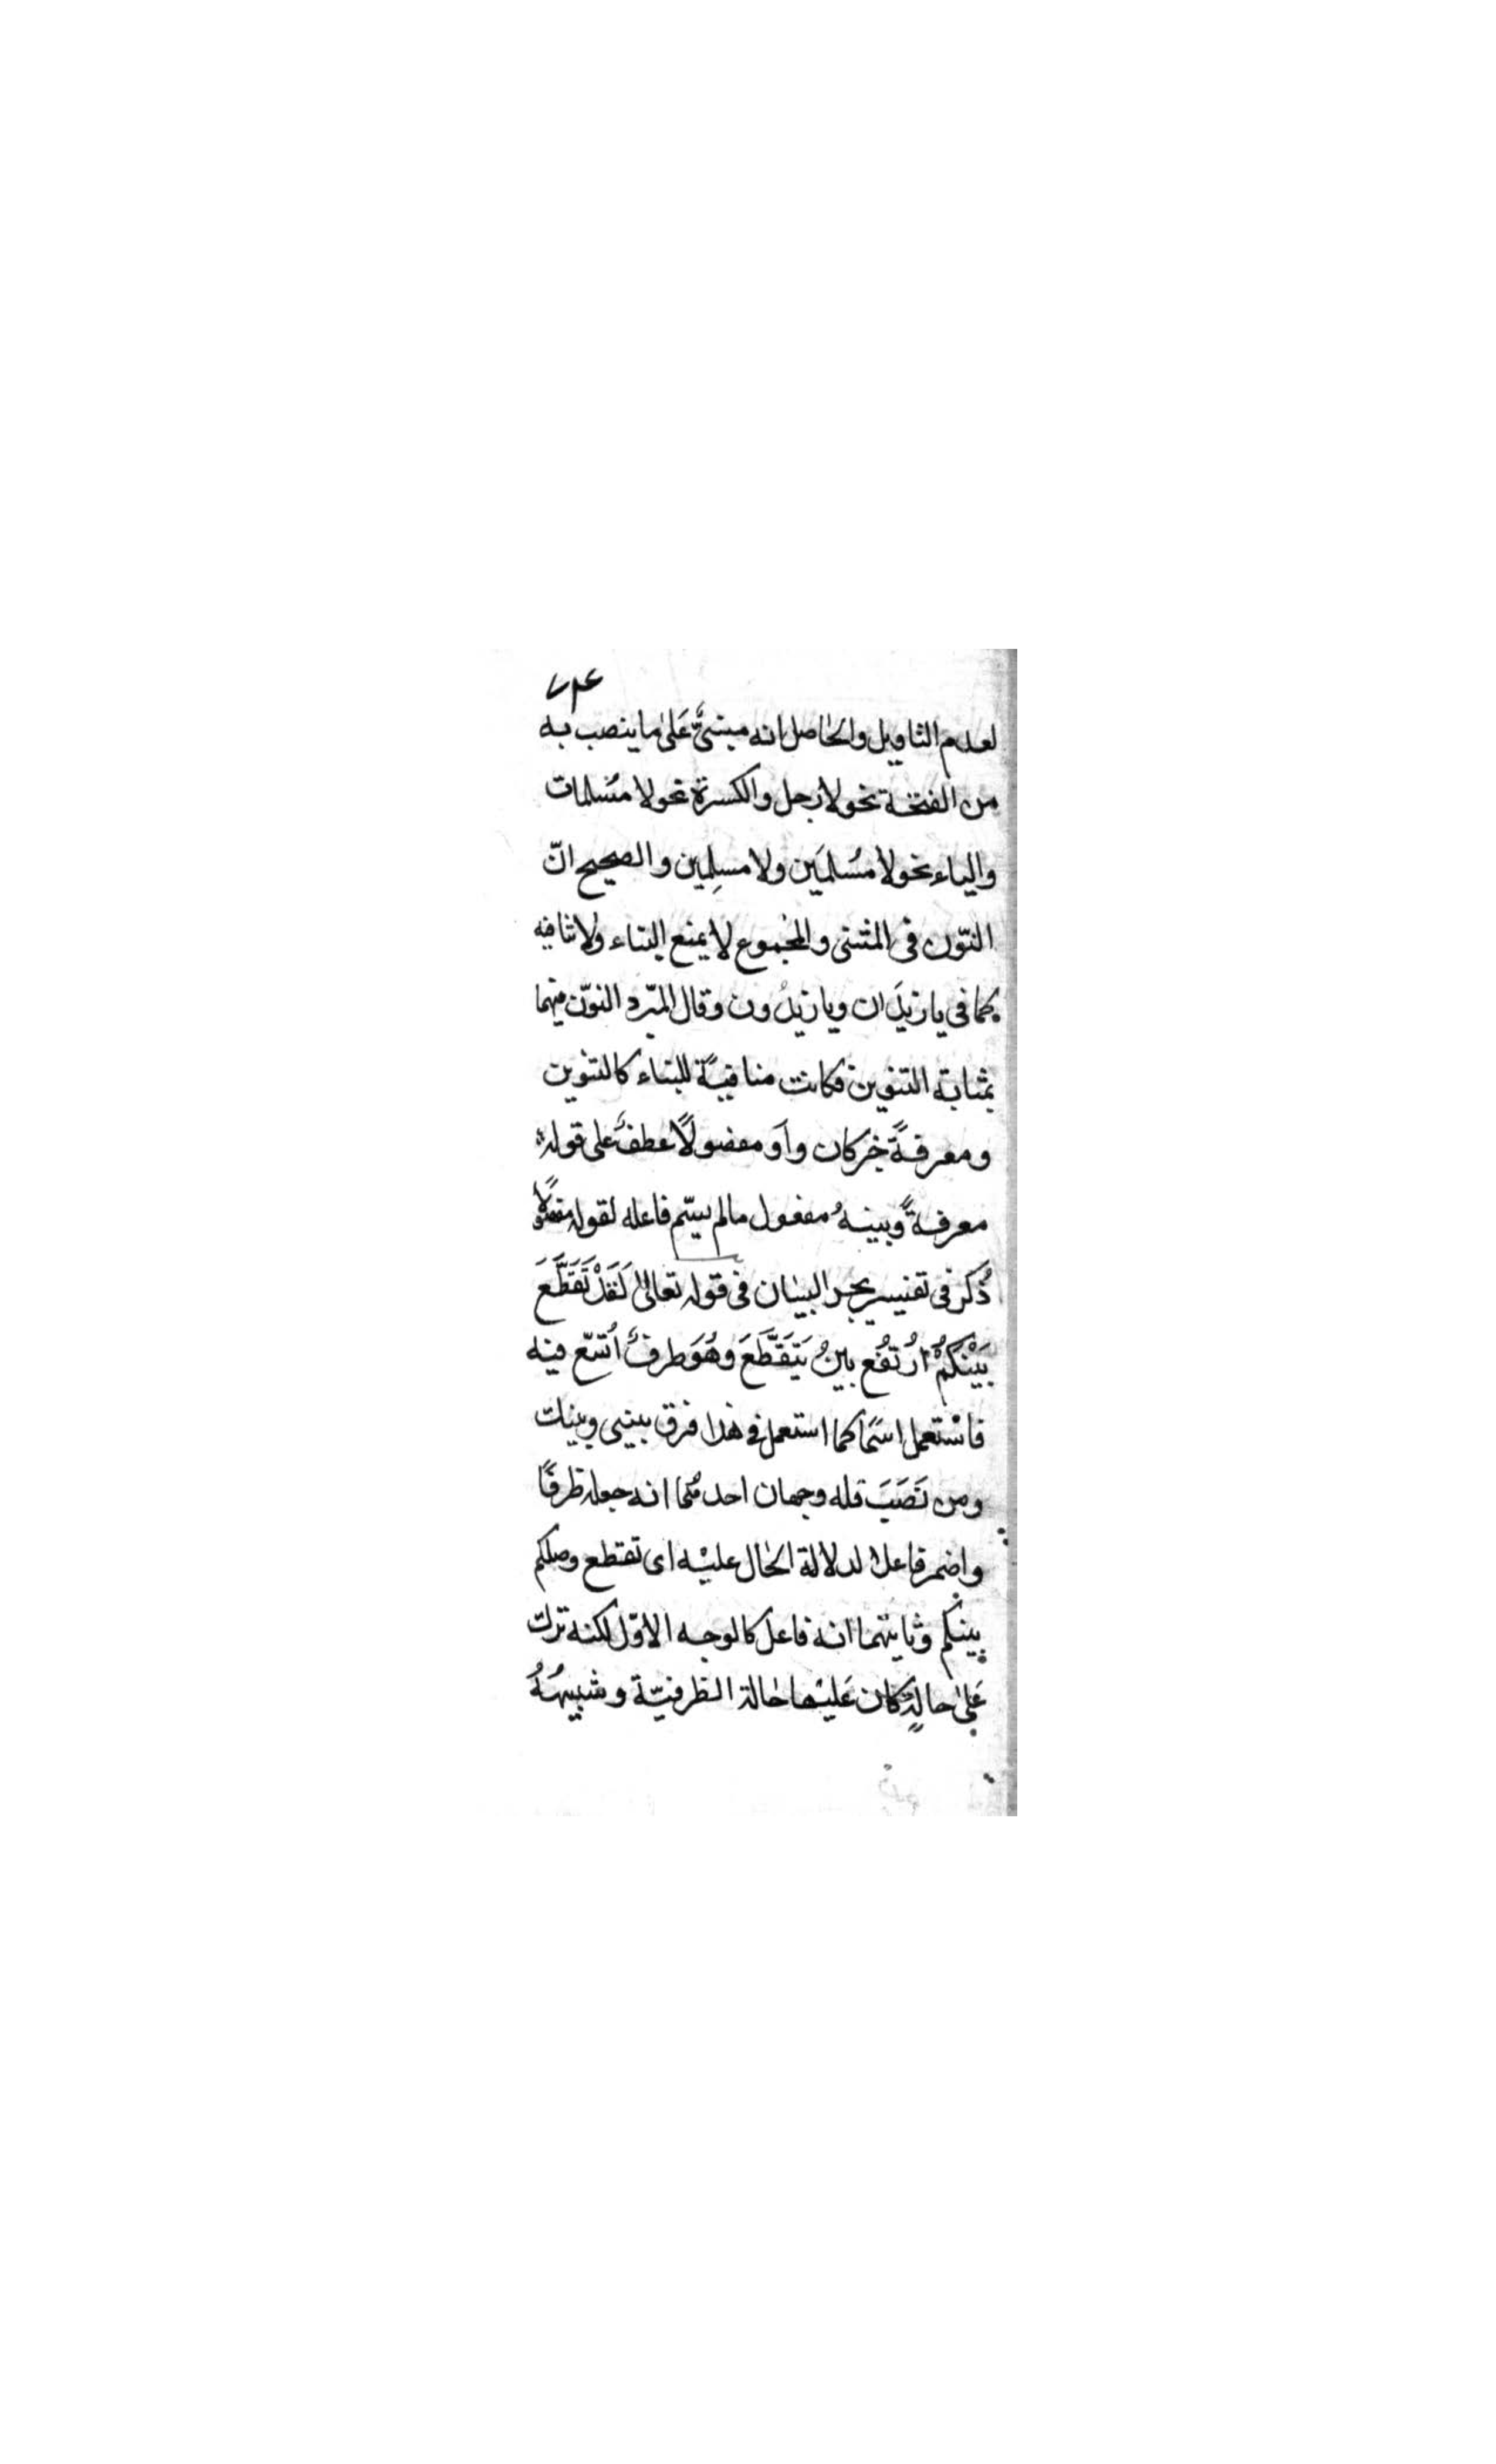 لعدم التاويل والحاصل انه مبنىٌّ عَلىٰ ما ينصب به
من الفتحة نحو لا رجل والكسرة نحو لا مسلمات
والياء نحو لا مُسلمَين ولا مسلِمين والصحيح انّ
النّون فى المثنى والمجموع لا يمنع البناء ولا تنافيه
كما فى يا زيدَان ويا زيدُون وقال المبّرد النوّن فيهما
بمثابة التنوين فكانت منافيةً للبناء كالتنوين
ومعرفةً خبر كان واَو مفضولًا عطفٌ على قوله
معرفةً وبينهُ مفعول مالم يسّم فاعله لقوله مفصولًا
ذُكر فى تفسير بحر البيان فى قوله تعالىٰ لَقَدْ تَقَطَّعَ
بَيْنَكُمْ ارُتفُع بينُ بَتَقَطَّعَ وهُوَ ظرفٌ اُتسّع فيه
فاسْتعمل اسَما كما استعمل فى هذا فرق بينى وبينك
ومن نَصَبَ فله وجهان احدهُما انه جعله ظرفًا
واضمر فاعلا لدلالة الحٰال عليْه اى تقطع وصلكم
بينكم وثانيتهما انه فاعل كالوجه الاوّل لكنه ترك
عَلىٰ حالةٍ كان عَليْها حٰالة الظرفيّة وشبيهُهُ